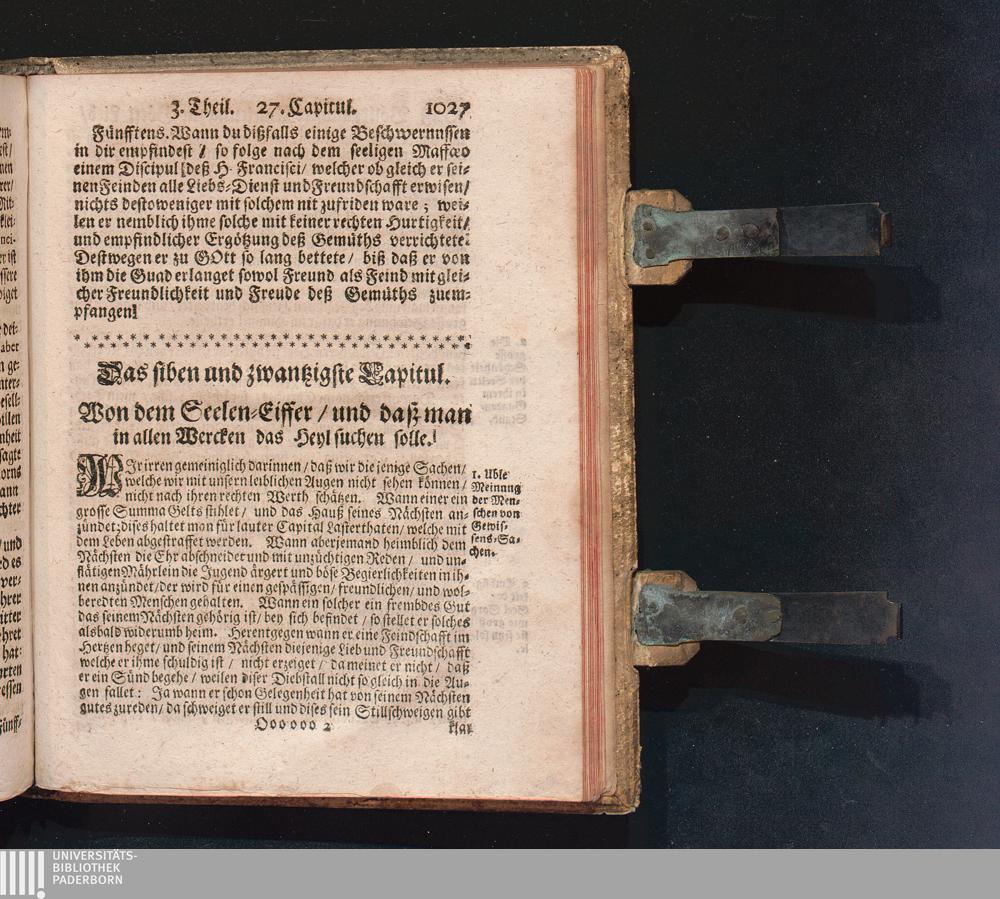 3. Theil. 27. Capitul. 1027
Fünfftens. Wann du dißfalls einige Beschwernussen
in dir empfindest / so folge nach dem seeligen Maffæo
einem Discipul deß H. Francisci / welcher ob gleich er sei-
nen Feinden alle Liebs-Dienst und Freundschafft erwisen /
nichts destoweniger mit solchem nit zufriden ware ; wei-
len er nemblich ihme solche mit keiner rechten Hurtigkeit /
und empfindlicher Ergötzung deß Gemüths verrichtete.
Destwegen er zu GOtt so lang bettete / biß daß er von
ihm die Gnad erlanget sowol Freund als Feind mit glei-
cher Freundlichkeit und Freude deß Gemüths zuem-
pfangen.
Das siben und zwantzigste Capitul.
Von dem Seelen-Eiffer / und daß man
in allen Wercken das Heyl suchen solle.
WIr irren gemeiniglich darinnen / daß wir die jenige Sachen /
welche wir mit unsern leiblichen Augen nicht sehen können /
nicht nach ihren rechten Werth schätzen. Wann einer ein
grosse Summa Gelts stihlet / und das Hauß seines Nächsten an-
zündet ; dises haltet man für lauter Capital Lasterthaten / welche mit
dem Leben abgestraffet werden. Wann aber jemand heimblich dem
Nächsten die Ehr abschneidet und mit unzüchtigen Reden / und un-
flätigen Mährlein die Jugend ärgert und böse Begierlichkeiten in ih-
nen anzündet / der wird für einen gespässigen / freundlichen / und wol-
beredten Menschen gehalten. Wann ein solcher ein frembdes Gut
das seinem Nächsten gehörig ist / bey sich befindet / so stellet er solches
alsbald widerumb heim. Herentgegen wann er eine Feindschafft im
Hertzen heget / und seinem Nächsten diejenige Lieb und Freundschafft
welche er ihme schuldig ist / nicht erzeiget / da meinet er nicht / daß
er ein Sünd begehe / weilen diser Diebstall nicht so gleich in die Au-
gen fallet : Ja wann er schon Gelegenheit hat von seinem Nächsten
gutes zureden / da schweiget er still und dises sein Stillschweigen gibt
Oooooo 2 klar
1. Uble
Meinung
der Men-
schen von
Gewis-
sens-Sa-
chen.
UNIVERSITÄTS-
BIBLIOTHEK
PADERBORN